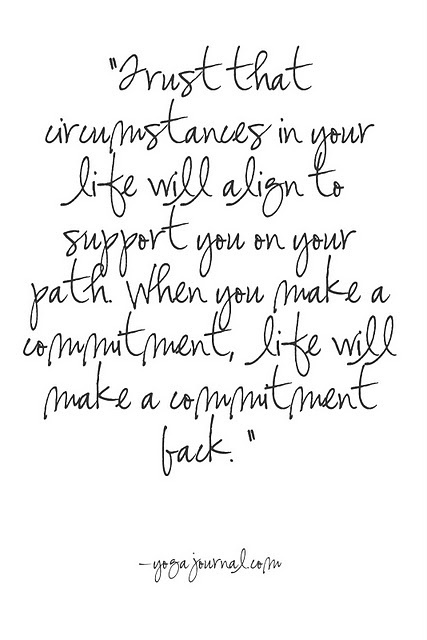 "Trust that
circumstances in your
life will align to
support you on your
path. When you make a
commitment, life will
make a commitment
back."
-yogajournal.com